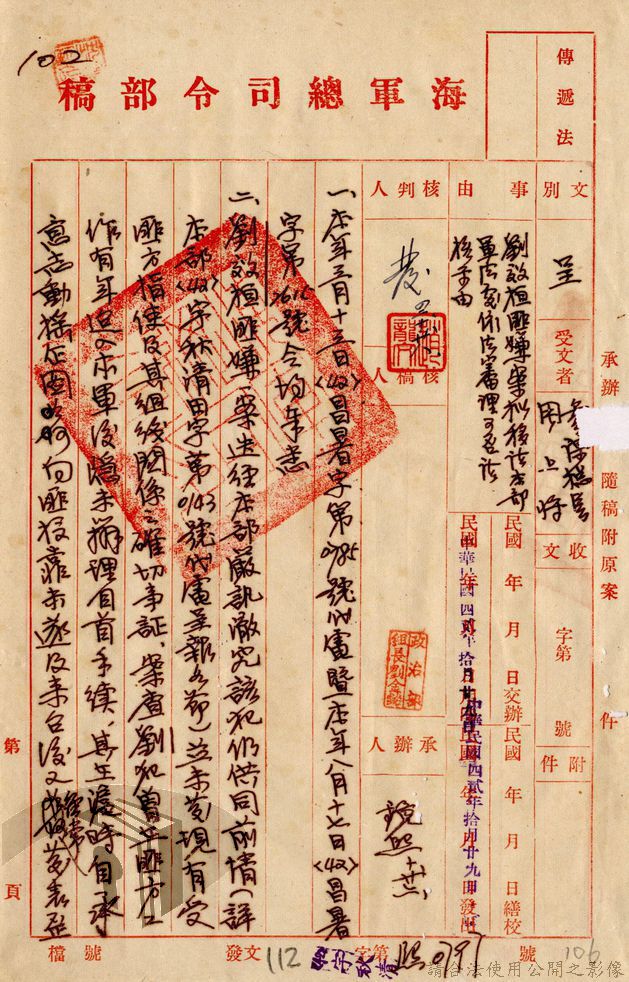 102
海軍總司令部稿
傳遞法
文別
呈
受文者
參謀總長
周上將
事由
劉效桓匪嫌案擬移請本部
軍法處依法審理可否請
核示由
核判人
發
核稿人
政治部
組長劉
承辦人
承辦
隨稿附原案
件
收文
字第
號
附件
民國 年 月 日交辦
民國 年 月 日繕校
中華民國四貳年拾月廿九日
中華民國四貳年拾月廿九日
一、本年三月十三日(42)昌署字第0785號代電暨本年八月十七日(42)昌署
字第1616號令均奉悉
二、劉效桓匪嫌一案迭經本部嚴訊澈究該犯仍供同前情(詳
本部(42)字秋清田字第0143號代電呈報各節)並未發現有受
匪方指使及其組織關係之確切事証、案查劉犯曾在匪方工
作有年迨入本軍後隱未辦理自首手續、其在滬時自承
意志動搖企圖 向匪投靠未遂及來台後又經常 發表歪
第 頁
檔號
發文
112
字第
秋清
0797
號
106
請合法使用公開之影像